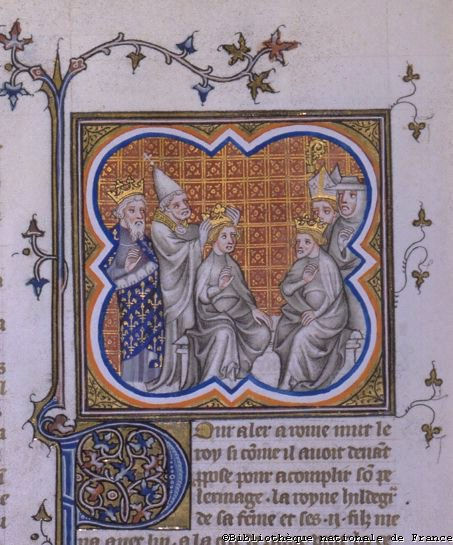 Pour aler a rome mut le
roy si cōme il avoit devāt
ppose pour acomplir sō pe
lerinage . la royne hildegr̄
de sa fēme et ses .ij. filz me
©Bibliothèque nationale de France